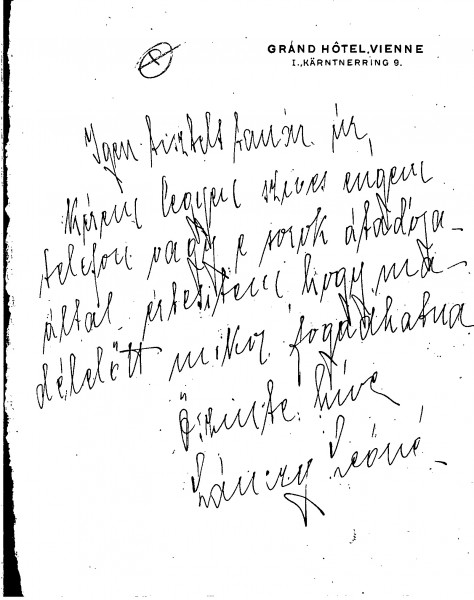 GRAND HÔTEL, VIENNE
I., KÄRNTNERRING 9.
Igen tisztelt tanár úr,
kérem legyen szives engem
telefon vagy e sorok átadója
által értesíteni hogy ma
délelőtt mikor fogadhatna
Őszinte híve
Lánczy Leóné